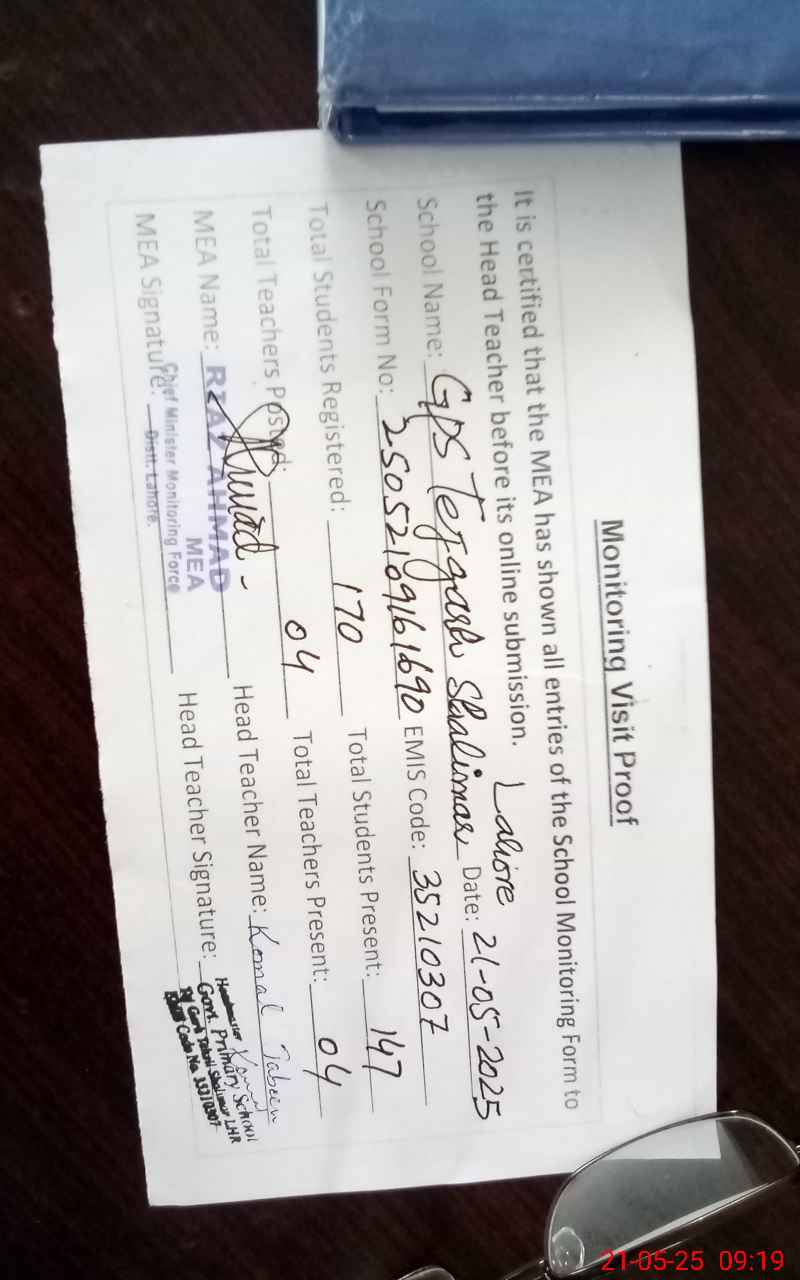 Monitoring Visit Proof
It is certified that the MEA has shown all entries of the School Monitoring Form to
the Head Teacher before its online submission. Lahore
School Name: GPS Tezgarh Shalimar Date: 21-05-2025
School Form No: 25052109161690 EMIS Code: 35210307
Total Students Registered: 170 Total Students Present: 147
Total Teachers Posted: 04 Total Teachers Present: 04
MEA Name: RIAZ AHMAD Head Teacher Name: Komal Jabeen
MEA
MEA Signature: Head Teacher Signature:
Chief Minister Monitoring Force
Distt. Lahore.
Govt. Primary School
Shalimar LHR
Code No. 35210307
21-05-25 09:19